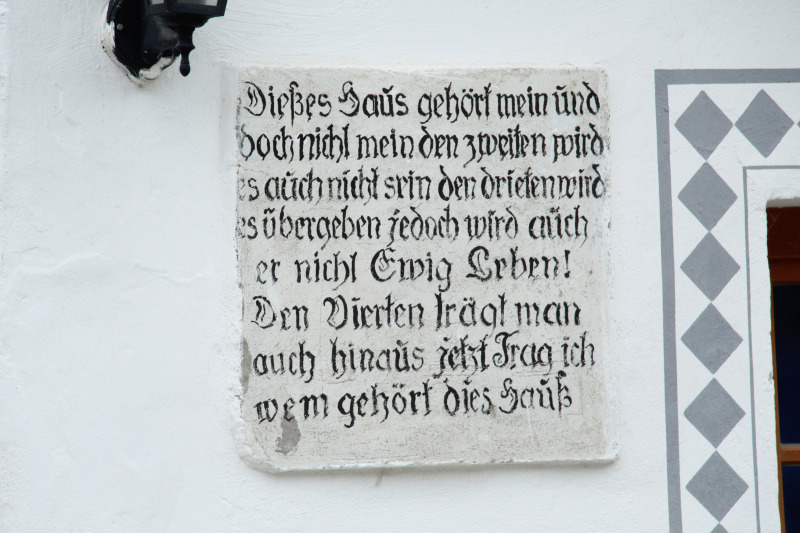 Dießes Haus gehört mein und
doch nicht mein den zweiten wird
es auch nicht sein den drieten wird
es übergeben jedoch wird auch
er nicht Ewig Leben!
Den Vierten trägt man
auch hinaus jetzt Frag ich
wem gehört dies Hauß